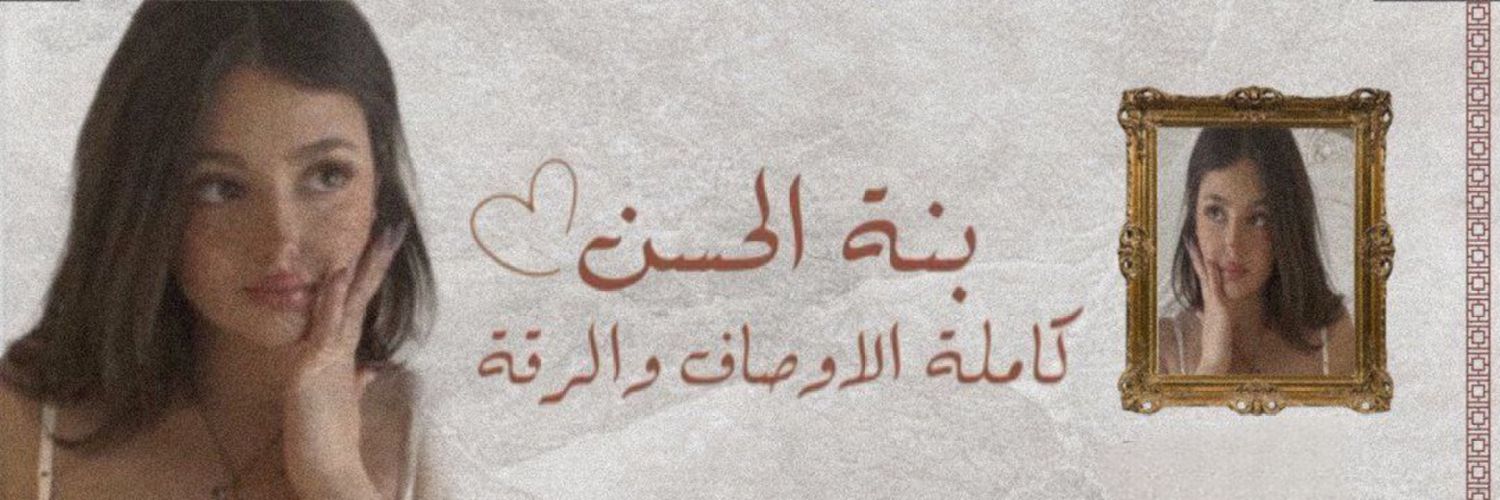 بنة الحسن
كاملة الاوصاف والرقة